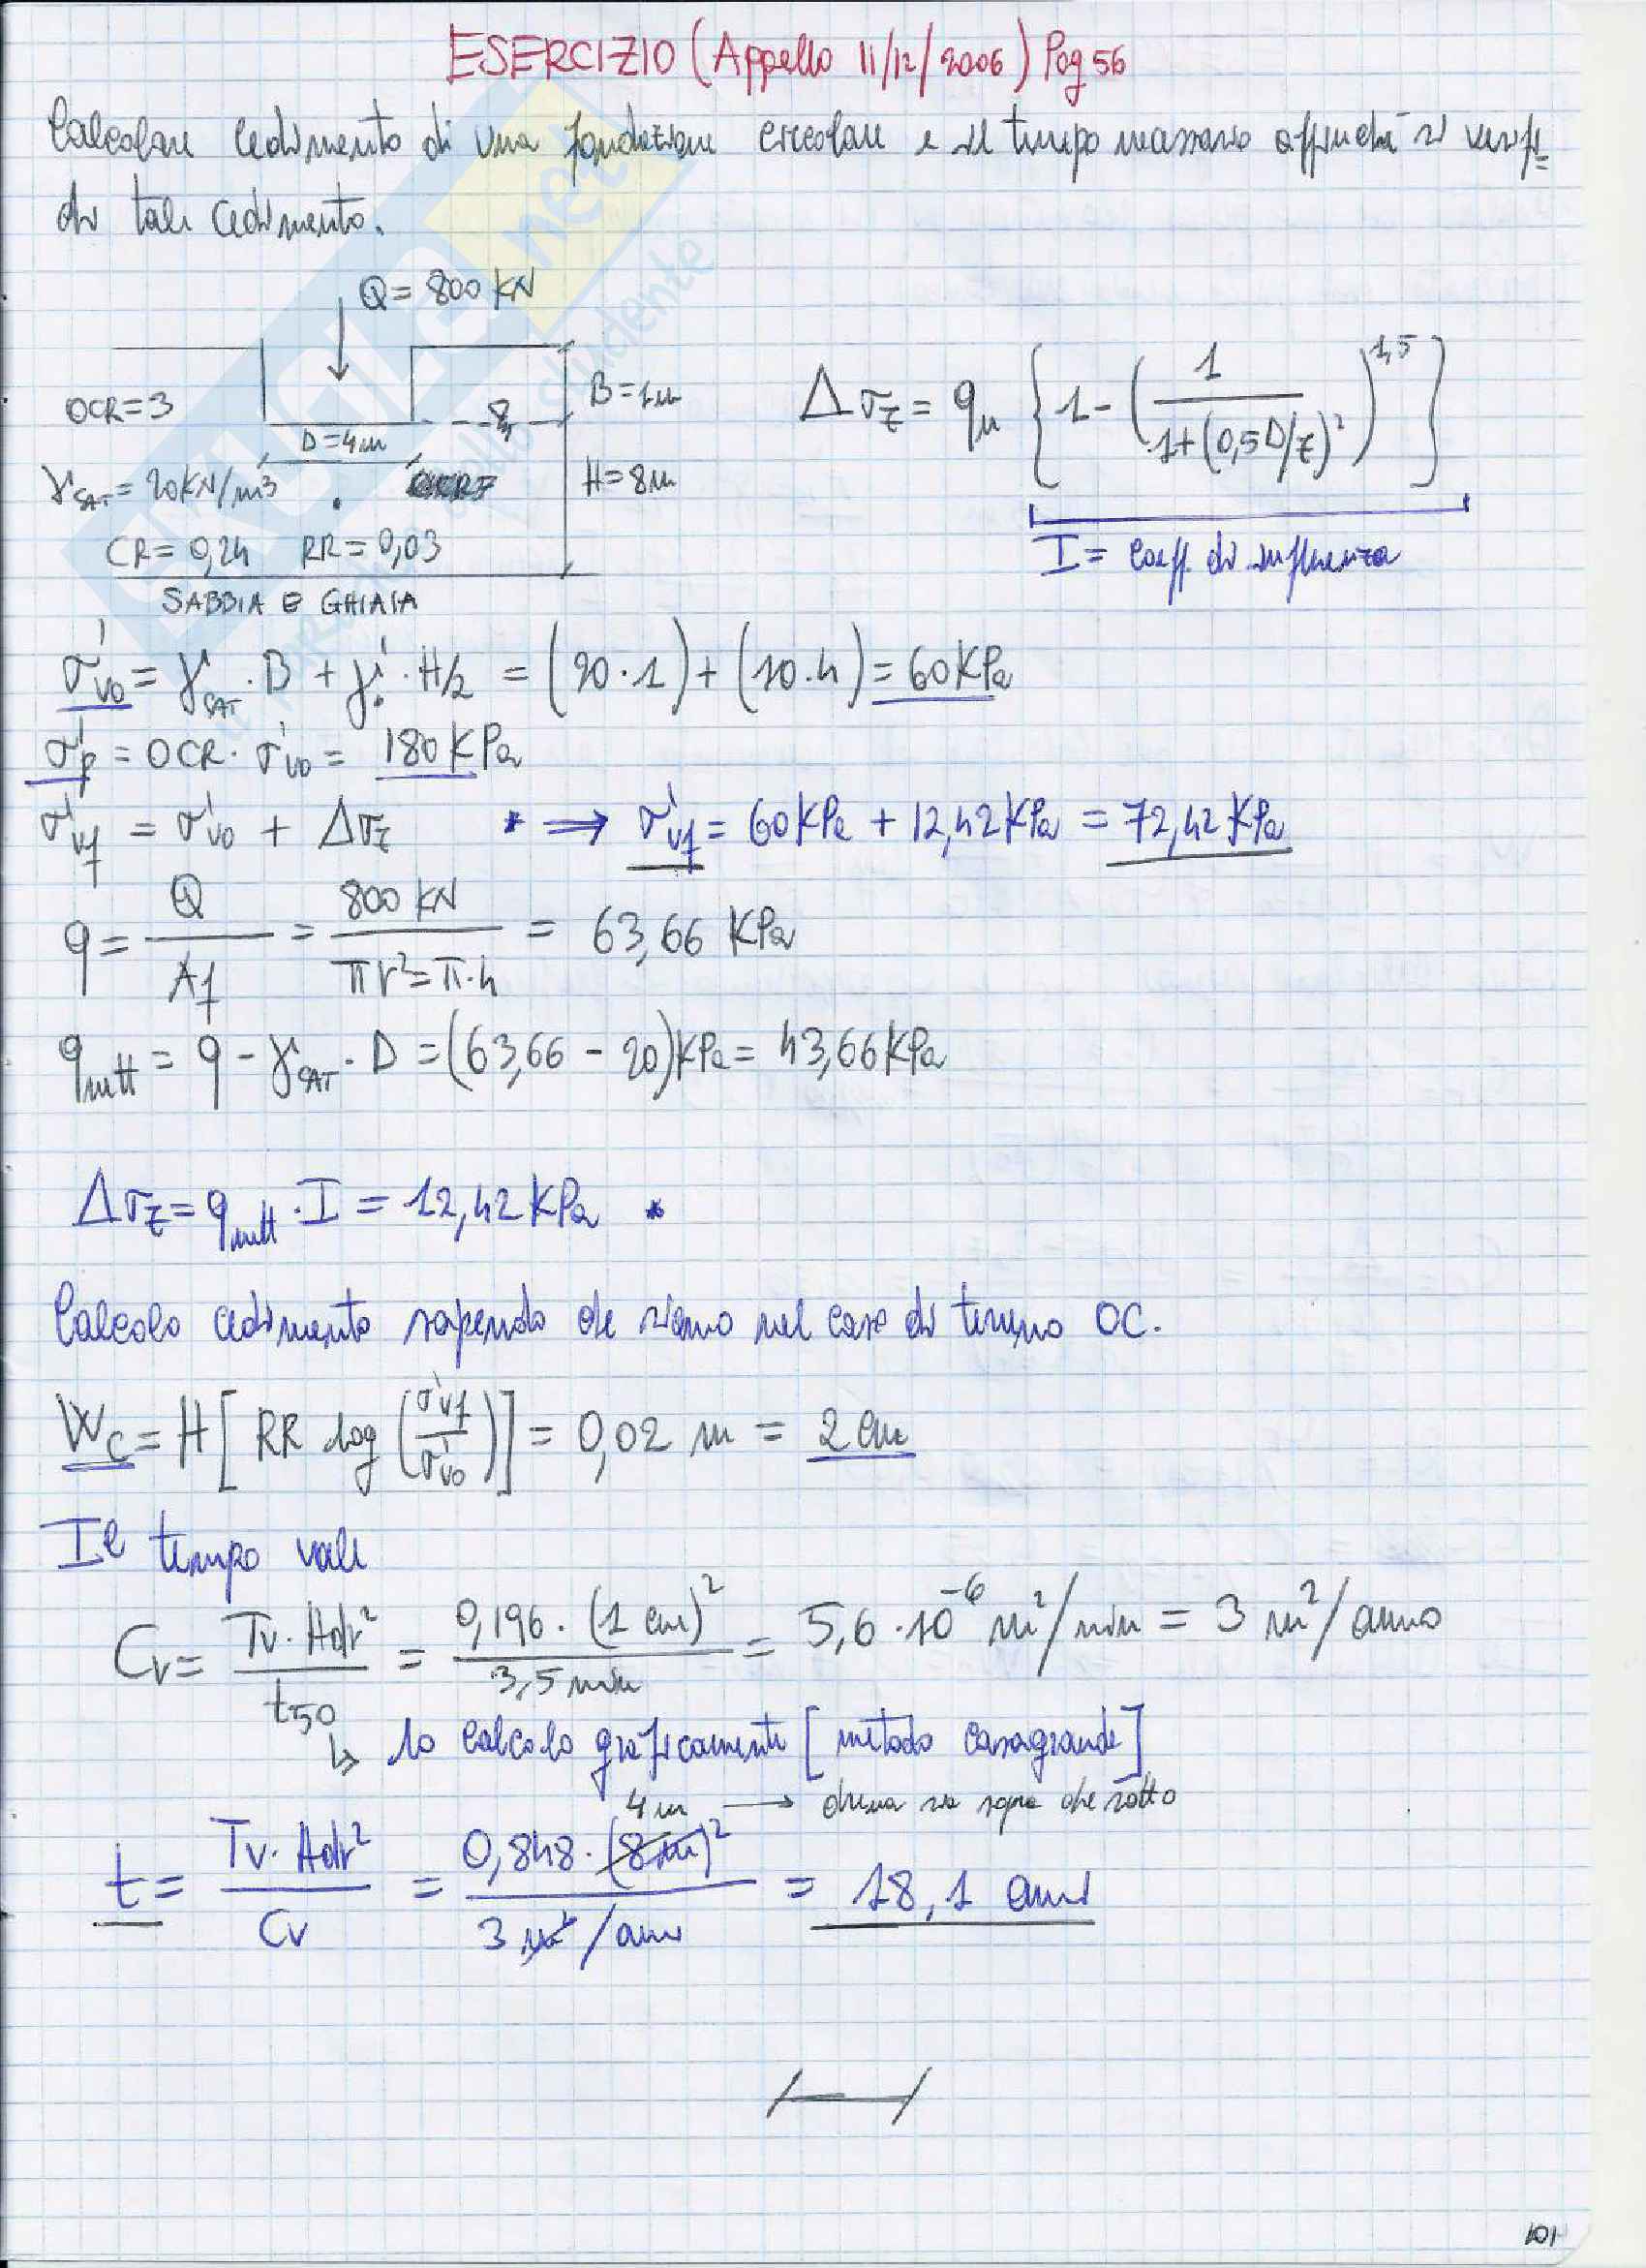 ESERCIZIO (Appello 11/12/2006) Pag 56
Calcolare cedimento di una fondazione circolare e il tempo necessario affinché si verifi=
chi tale cedimento.
Q = 800 KN
OCR = 3
B = 1m
D = 4m
γSAT = 20KN/m³
H = 8m
CR = 0,24 RR = 0,03
SABBIA E GHIAIA
Δσz = qn { 1 - ( 1 / 1+(0,5D/z)² )^1,5 }
I = coeff. di influenza
σ'v0 = γSAT · B + γ' · H/2 = (20·1) + (10·4) = 60KPa
σ'p = OCR · σ'v0 = 180KPa
σ'vf = σ'v0 + Δσz * ⇒ σ'vf = 60KPa + 12,42KPa = 72,42KPa
q = Q / Af = 800 KN / πr²=π·4 = 63,66 KPa
qnett = q - γSAT · D = (63,66 - 20)KPa = 43,66KPa
Δσz = qnett · I = 12,42KPa *
Calcolo cedimento sapendo che siamo nel caso di terreno OC.
Wc = H [ RR log ( σ'vf / σ'v0 ) ] = 0,02 m = 2 cm
Il tempo vale
Cv = Tv · Hdr² / t50 = 0,196 · (1 cm)² / 3,5 min = 5,6 · 10⁻⁶ m²/min = 3 m²/anno
↳ lo calcolo graficamente [metodo Casagrande]
4m → drena sia sopra che sotto
t = Tv · Hdr² / Cv = 0,848 · (8m)² / 3 m²/anno = 18,1 anni
101